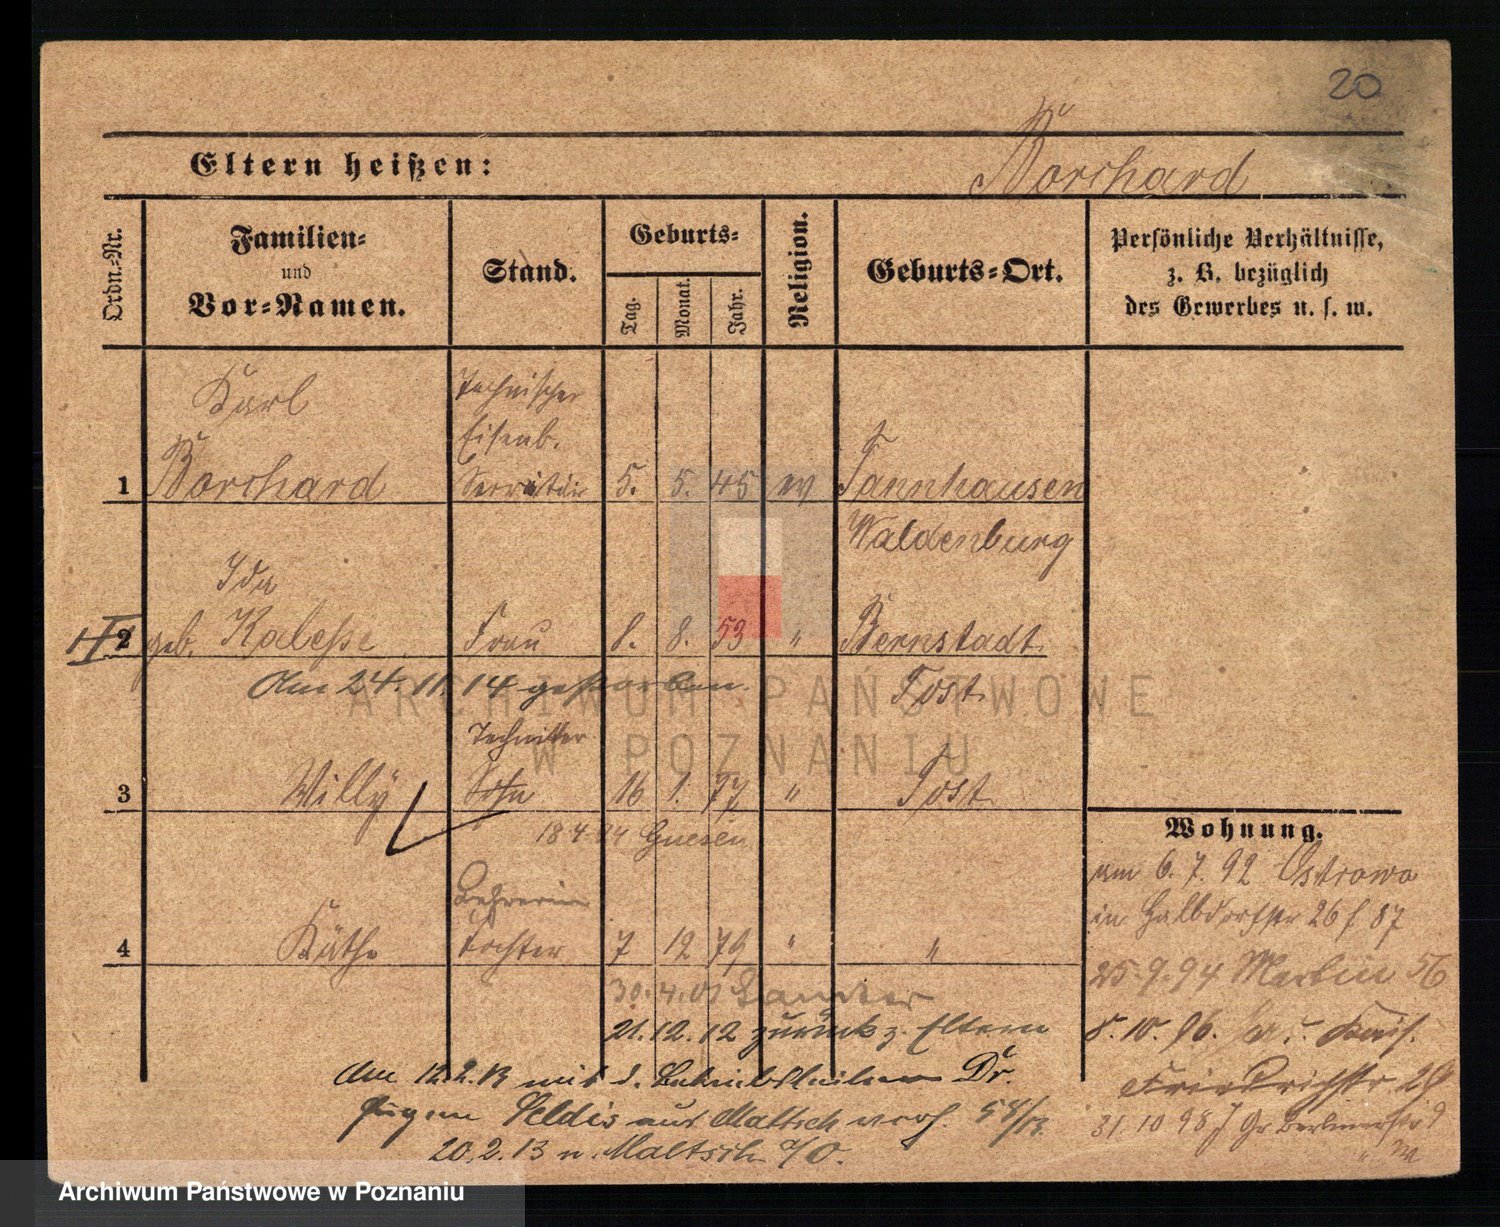 20
Eltern heißen: Borchard
Ordn.-Nr.
Familien-
und
Vor-Namen.
Stand.
Geburts-
Tag.
Monat.
Jahr.
Religion.
Geburts-Ort.
Persönliche Verhältnisse,
z. B. bezüglich
des Gewerbes u. s. w.
Karl Technischer
Eisenb.
1 Borchard Secretair 5. 5. 45 ev Tannhausen
Waldenburg
Ida
2 geb. Kalesse Frau 8. 8. 53 " Bernstadt
Am 24. 11. 14 gestorben. Tost
Techniker
3 Willy Sohn 16 1. 77 " Tost
18 4. 94 Gnesen
Lehrerin
4 Käthe Tochter 7 12 79 " "
30. 4. 01
21. 12. 12 zurück z. Eltern
Am 12. 2. 13 mit d. Dr.
Eugen aus Maltsch verh. 58/13.
20. 2. 13 n. Maltsch a/O.
Wohnung.
am 6. 7. 92 Ostrowo
in Halbdorfstr 26 f 87
25. 9. 94 Martin 56
8. 10. 96. Kais.
Friedrichstr. 29
31. 10 98 Gr Berlinerstr 9
ARCHIWUM PAŃSTWOWE
W POZNANIU
Archiwum Państwowe w Poznaniu